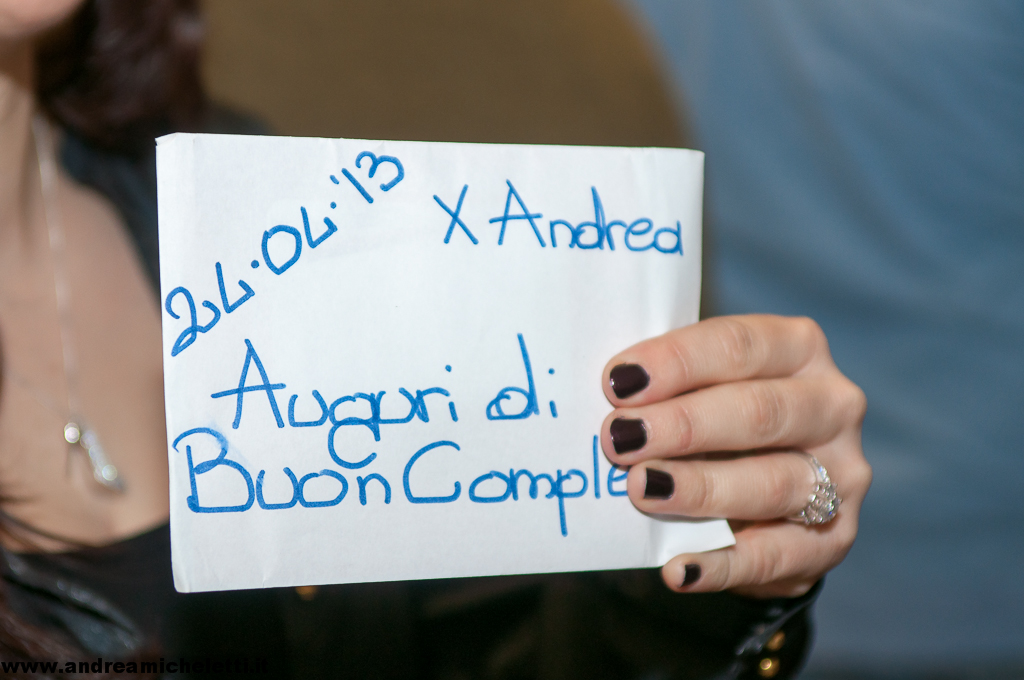 24.04.'13
X Andrea
Auguri di
Buon Comple
www.andreamicheletti.it